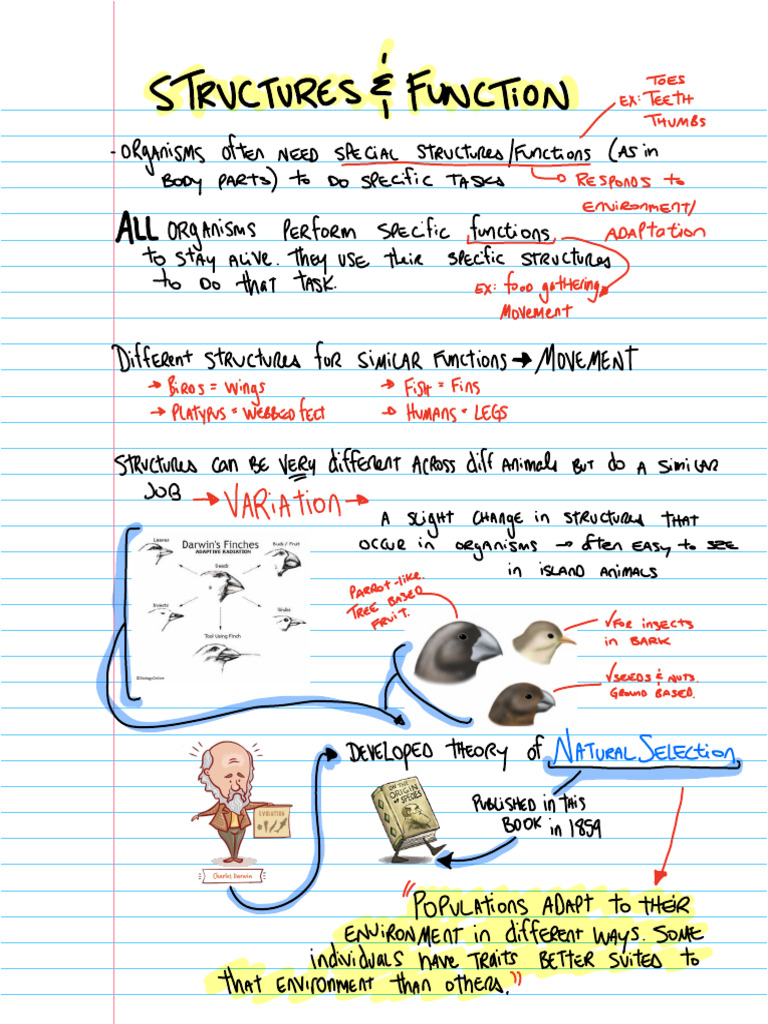 STRUCTURES & FUNCTION
TOES
EX: TEETH
THUMBS
- ORGANISMS OFTEN NEED SPECIAL STRUCTURES/FUNCTIONS (AS IN
BODY PARTS) TO DO SPECIFIC TASKS
RESPONDS TO
ENVIRONMENT/
ADAPTATION
ALL ORGANISMS PERFORM SPECIFIC FUNCTIONS
TO STAY ALIVE. THEY USE THEIR SPECIFIC STRUCTURES
TO DO THAT TASK.
EX: FOOD GATHERING
MOVEMENT
DIFFERENT STRUCTURES FOR SIMILAR FUNCTIONS → MOVEMENT
→ BIRDS = WINGS → FISH = FINS
→ PLATYPUS = WEBBED FEET → HUMANS = LEGS
STRUCTURES CAN BE VERY DIFFERENT ACROSS DIFF ANIMALS BUT DO A SIMILAR
JOB → VARIATION →
A SLIGHT CHANGE IN STRUCTURES THAT
OCCUR IN ORGANISMS → OFTEN EASY TO SEE
IN ISLAND ANIMALS
Darwin's Finches
ADAPTIVE RADIATION
Leaves
Buds / Fruit
Seeds
Insects
Grubs
Tool Using Finch
©BiologyOnline
PARROT-LIKE.
TREE BASED
FRUIT.
√FOR INSECTS
IN BARK
√SEEDS & NUTS.
GROUND BASED.
DEVELOPED THEORY OF NATURAL SELECTION
EVOLUTION
Charles Darwin
ON THE
ORIGIN
OF SPECIES
PUBLISHED IN THIS
BOOK IN 1859
"POPULATIONS ADAPT TO THEIR
ENVIRONMENT IN DIFFERENT WAYS. SOME
INDIVIDUALS HAVE TRAITS BETTER SUITED TO
THAT ENVIRONMENT THAN OTHERS."